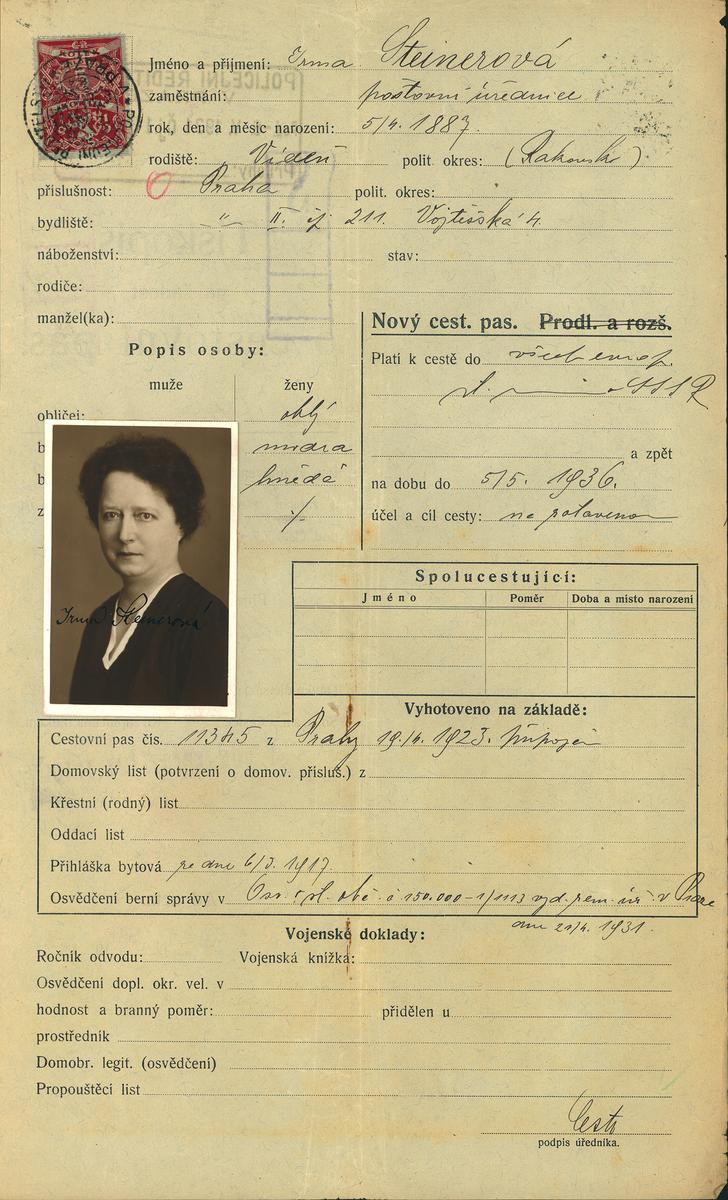 Jméno a příjmení: Irma Steinerová
zaměstnání: poštovní úřednice
rok, den a měsíc narození: 5/4. 1887.
rodiště: Vídeň polit. okres: (Rakousko)
příslušnost: Praha polit. okres:
bydliště: " II. čp 211. Vojtěšská 4.
náboženství: stav:
rodiče:
manžel(ka):
Nový cest. pas. Prodl. a rozš.
Popis osoby:
Platí k cestě do všech evrop.
muže ženy
st. SSSR
obličej: oblý
b modrá
a zpět
b hnědé
na dobu do 5/5. 1936.
z -/-
účel a cíl cesty: na zotavenou
Irma Steinerová
Spolucestující:
Jméno Poměr Doba a místo narození
Vyhotoveno na základě:
Cestovní pas čís. 11345 z Prahy 19/4. 1923. připojen
Domovský list (potvrzení o domov. přísluš.) z
Křestní (rodný) list
Oddací list
Přihláška bytová ze dne 1917.
Osvědčení berní správy v Osv. st. obč. č 150.000-1/1113 vyd. zem. úř. v Praze
dne 21/4. 1931.
Vojenské doklady:
Ročník odvodu: Vojenská knížka:
Osvědčení dopl. okr. vel. v
hodnost a branný poměr: přidělen u
prostředník
Domobr. legit. (osvědčení)
Propouštěcí list
podpis úředníka.